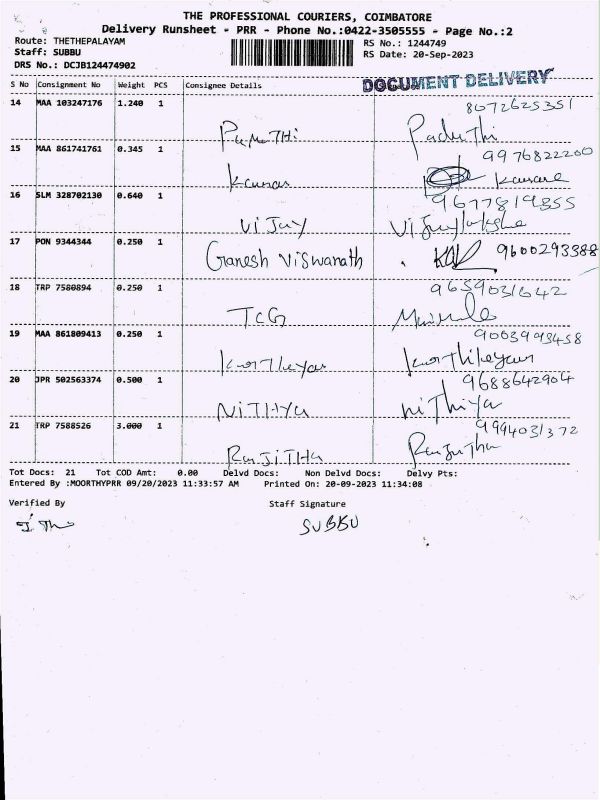 THE PROFESSIONAL COURIERS, COIMBATORE
Delivery Runsheet - PRR - Phone No.:0422-3505555 - Page No.:2
Route: THETHEPALAYAM
RS No.: 1244749
Staff: SUBBU
RS Date: 20-Sep-2023
DRS No.: DCJB124474902
DOCUMENT DELIVERY
S No Consignment No Weight PCS Consignee Details
8072625351
14 MAA 103247176 1.240 1
PAruTHi Paduthi
15 MAA 861741761 0.345 1
9976822200
kannan
16 SLM 328702130 0.640 1
9677819355
ViJay
17 PON 9344344 0.250 1
Ganesh Viswanath 9600293388
18 TRP 7580894 0.250 1
9659031642
TCG
19 MAA 861809413 0.250 1
9003993458
karthikeyan karthikeyan
20 JPR 502563374 0.500 1
9688642904
NiTHYA niThiya
21 TRP 7588526 3.000 1
9994031372
RanJiTHa Ranjitha
Tot Docs: 21 Tot COD Amt: 0.00 Delvd Docs: Non Delvd Docs: Delvy Pts:
Entered By :MOORTHYPRR 09/20/2023 11:33:57 AM Printed On: 20-09-2023 11:34:08
Verified By Staff Signature
SUBBU